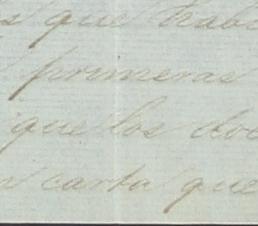 que
primeras
que los doc
carta que